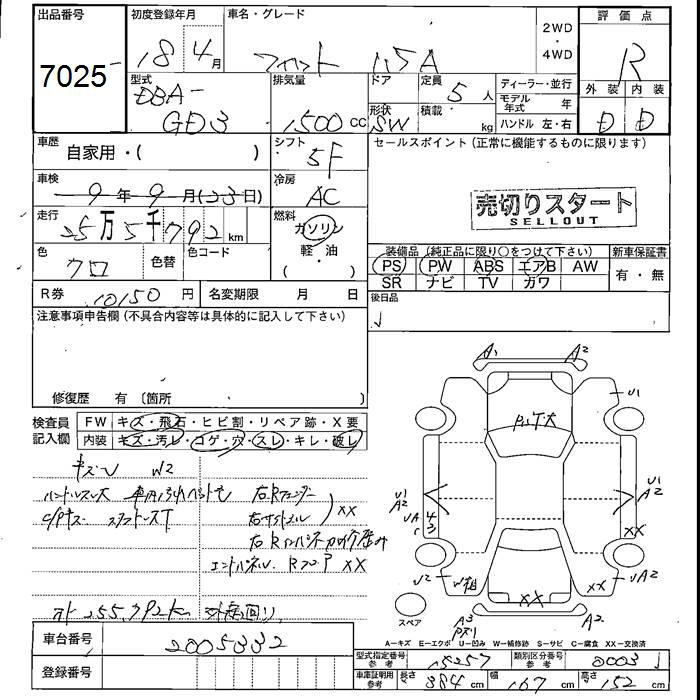 出品番号
7025
初度登録年月
18 4月
車名・グレード
フィット 1.5A
2WD
・
4WD
評価点
R
外装 内装
D D
型式
DBA-
GD3
排気量
1500cc
ドア
形状
SW
定員
5人
積載
kg
ディーラー・並行
モデル年式 年
ハンドル 左・右
車歴
自家用・( )
シフト
5F
セールスポイント(正常に機能するものに限ります)
売切りスタート
SELLOUT
車検
9年9月(23日)
冷房
AC
走行
25万5千792km
燃料
ガソリン
軽・油
( ・ )
色
クロ
色替
色コード
装備品(純正品に限り○をつけて下さい)
PS PW ABS エアB AW
SR ナビ TV ガワ
新車保証書
有・無
R券 10150円
名変期限 月 日
後日品
注意事項申告欄(不具合内容等は具体的に記入して下さい)
修復歴 有〔箇所 〕
検査員記入欄
FW キズ・飛石・ヒビ割・リペア跡・X要
内装 キズ・汚レ・コゲ・穴・スレ・キレ・破レ
キズU W2
右Rフェンダー
XX
エンドパネル Rフロア XX
メーター 255,792km
A1 A2
U1
U1
A2
UA
C
4
3
U1
A2
XX
U2
XX
XX
UA2
A3
A2
スペア
A-キズ E-エクボ U-凹み W-補修跡 S-サビ C-腐食 XX-交換済
車台番号
2005332
登録番号
型式指定番号
参考
15257
類別区分番号
参考
0003
車庫証明用
参考
長さ 384cm
幅 167cm
高さ 152cm